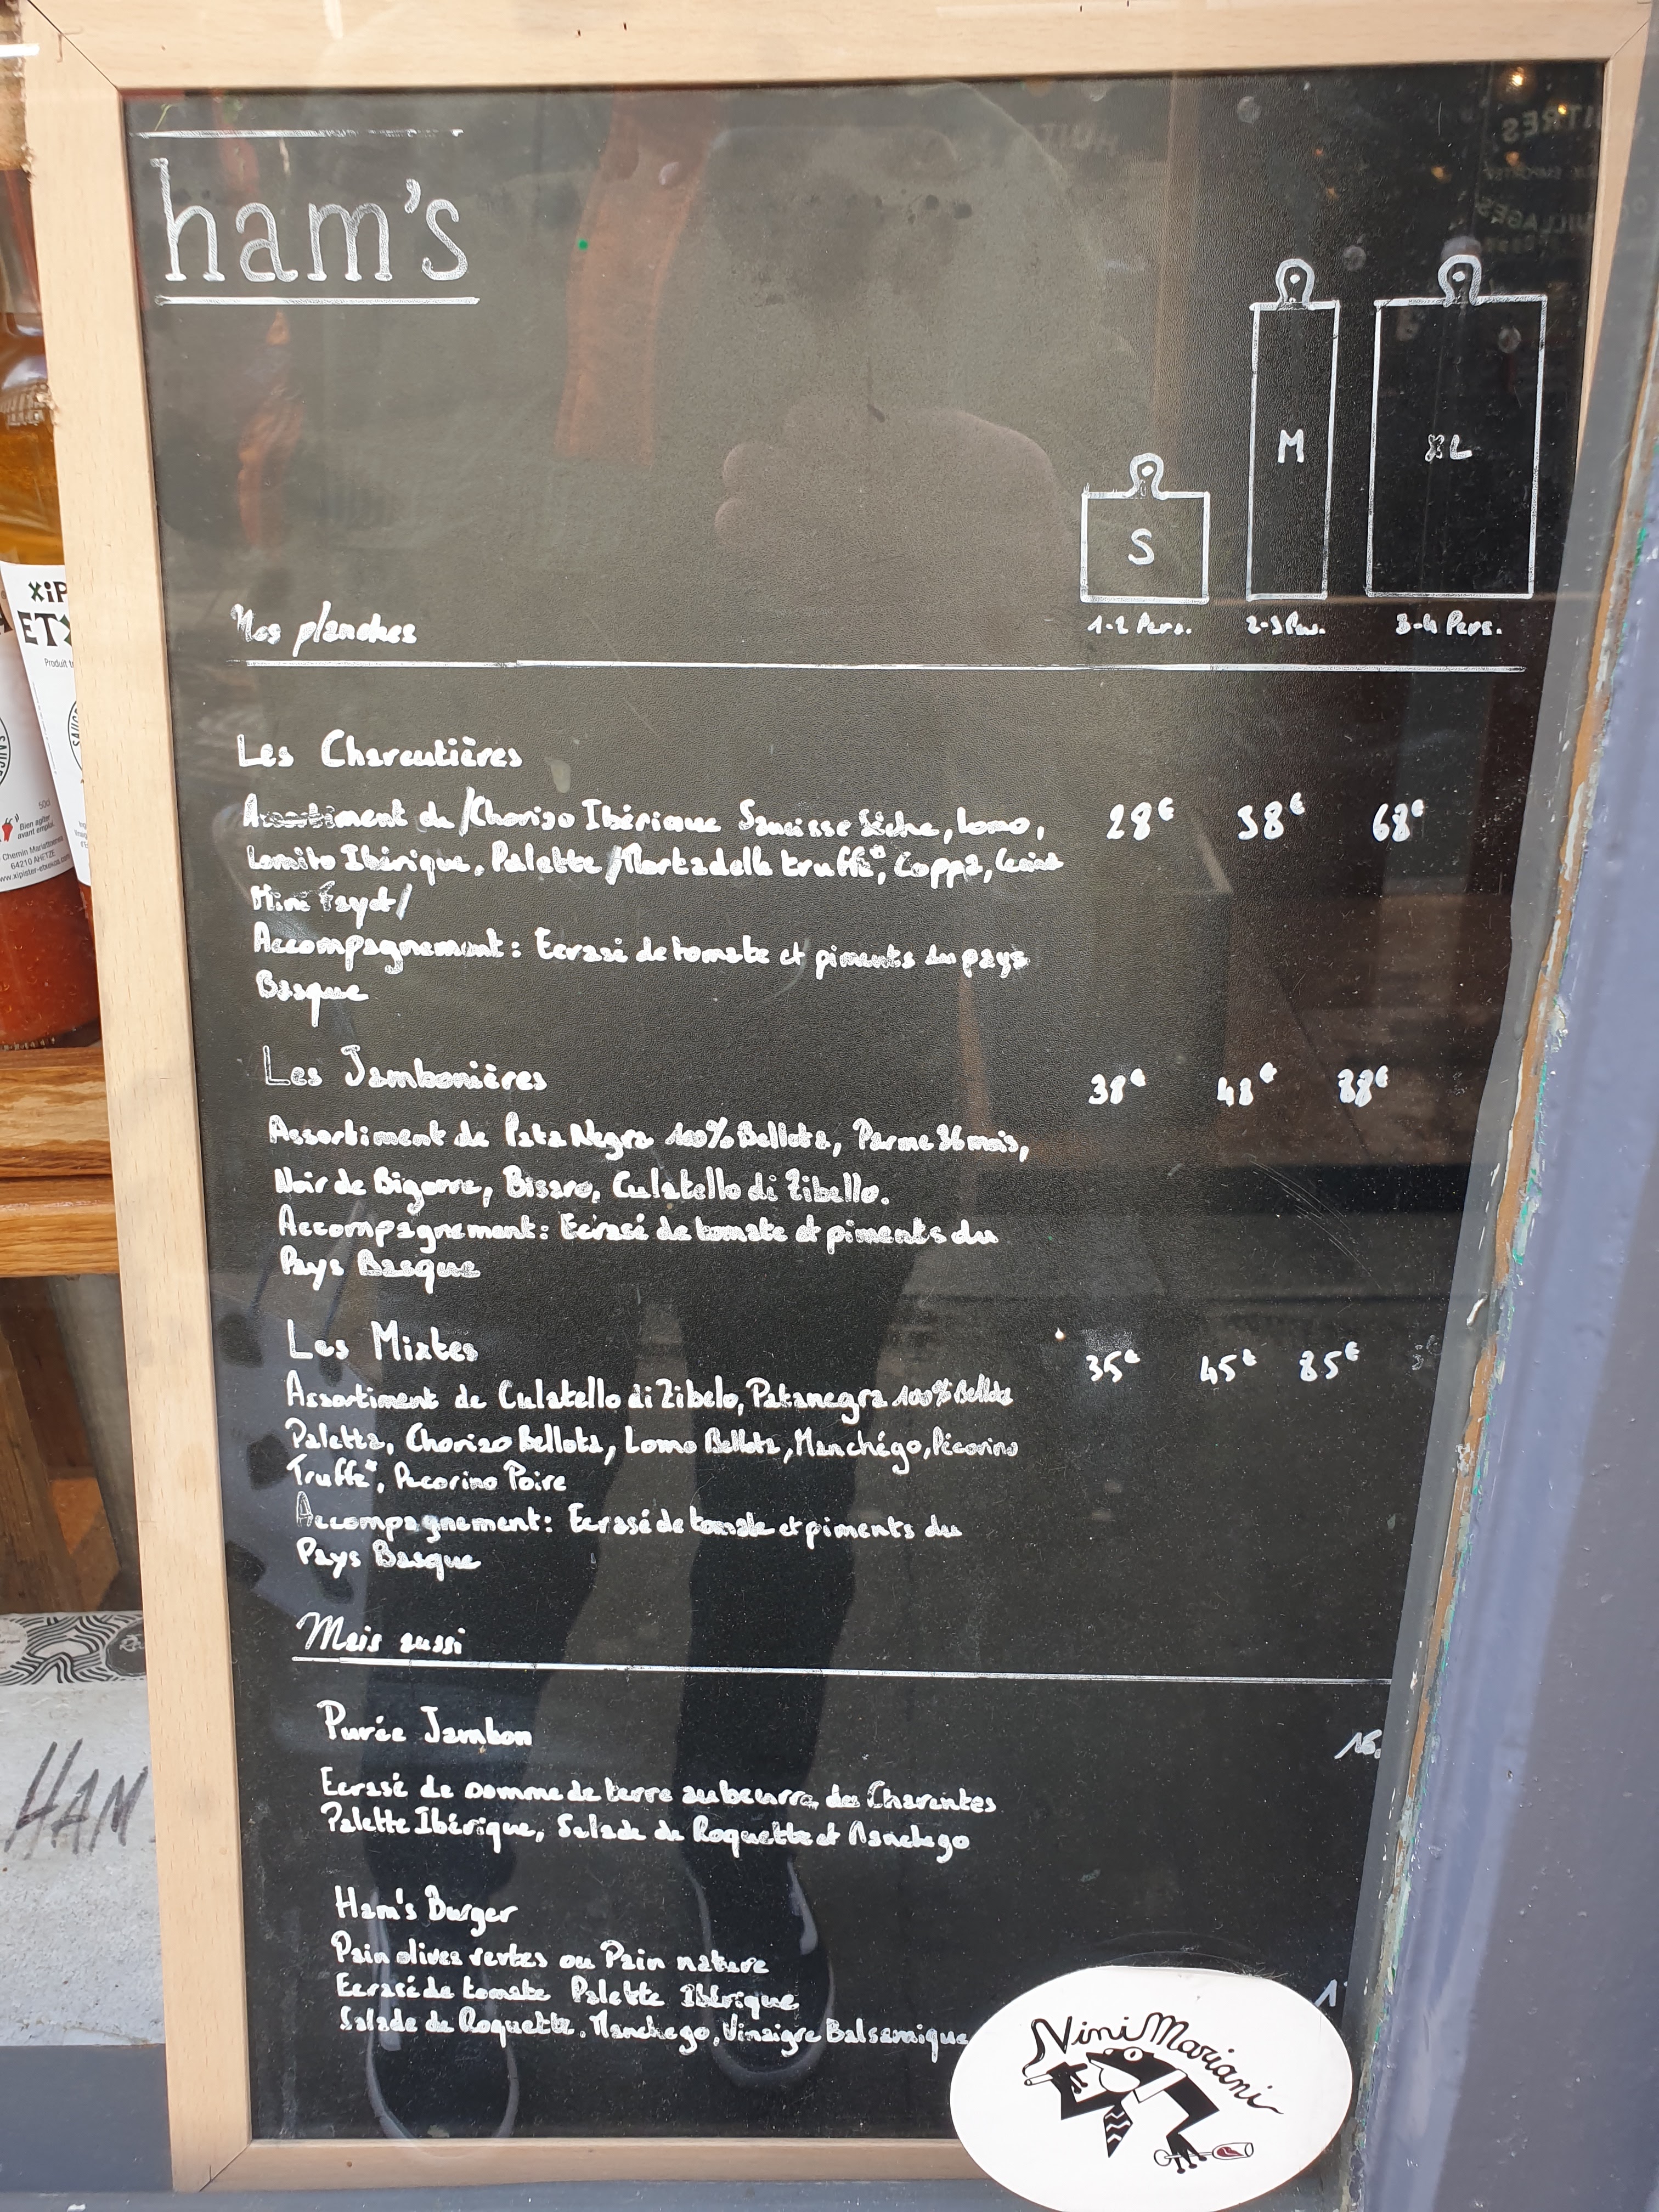 ham's
S
M
XL
Nos planches
1-2 Pers.
2-3 Pers.
3-4 Pers.
Les Charcutières
Assortiment de /Chorizo Ibérique Saucisse Sèche, Lomo,
28€ 38€ 68€
Lomito Ibérique, Palette /Mortadelle truffe*, Coppa,
Mini /
Accompagnement: Ecrasé de tomate et piments du pays
Basque
Les Jambonières
38€ 48€ 88€
Assortiment de Pata Negra 100% Bellota, Parme 36 mois,
Noir de Bigorre, Bisaro, Culatello di Zibello.
Accompagnement: Ecrasé de tomate et piments du
Pays Basque
Les Mixtes
35€ 45€ 85€
Assortiment de Culatello di Zibelo, Patanegra 100% Bellota
Paletta, Chorizo Bellota, Lomo Bellota, Manchégo, Pécorino
Truffe*, Pecorino Poire
Accompagnement: Ecrasé de tomate et piments du
Pays Basque
Mais aussi
Purée Jambon
16.
Ecrasé de pomme de terre au beurre des Charentes
Palette Ibérique, Salade de Roquette et Manchego
Ham's Burger
Pain olives vertes ou Pain nature
Ecrasé de tomate Palette Ibérique
Salade de Roquette. Manchego, Vinaigre Balsamique
Nini Mariani
XiP
ET
Produit
50cl
Bien agiter
avant emploi
Chemin
64210 AHETZE
HAM